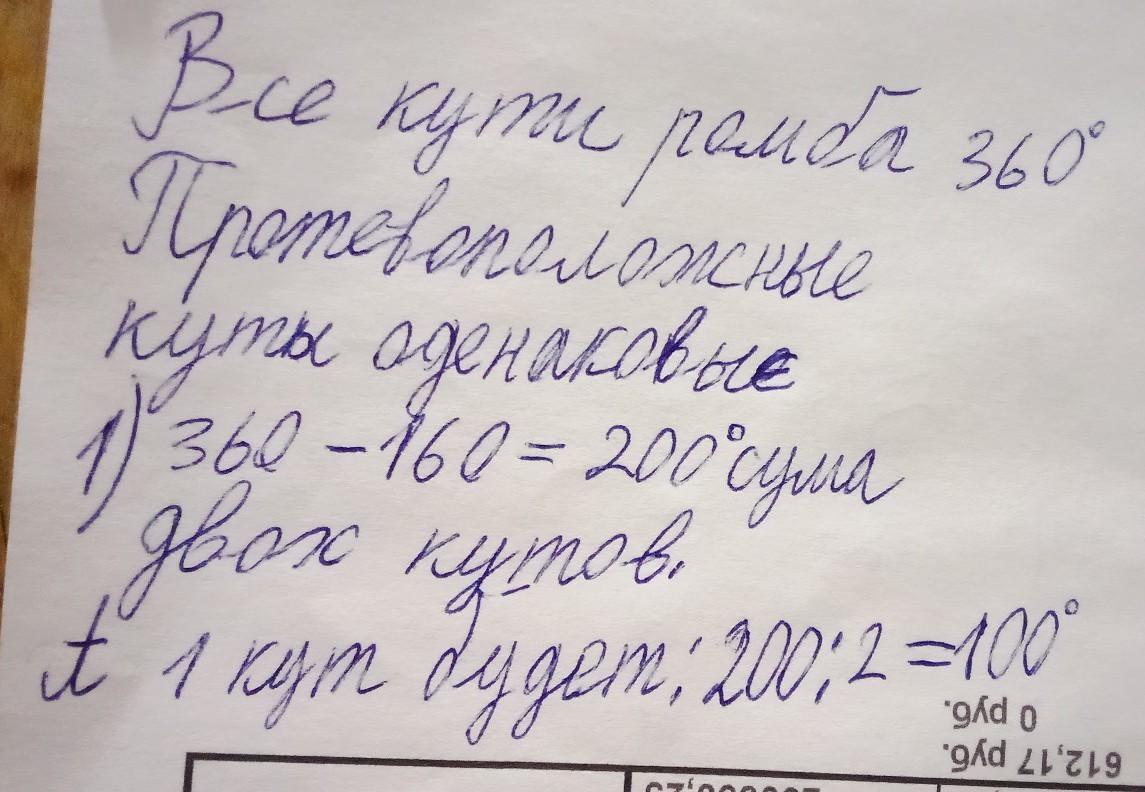 Все кути ромба 360°
Протевоположные
куты оденаковые
1) 360 - 160 = 200° сума
двох кутов.
А 1 кут будет: 200:2=100°
0 руб.
612,17 руб.